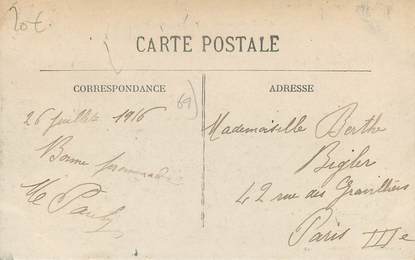 20 €
CARTE POSTALE
CORRESPONDANCE
ADRESSE
26 juillet 1916
69)
Bonne promenade
Mademoiselle Berthe
Bigler
42 rue des Gravilliers
Paris IIIe